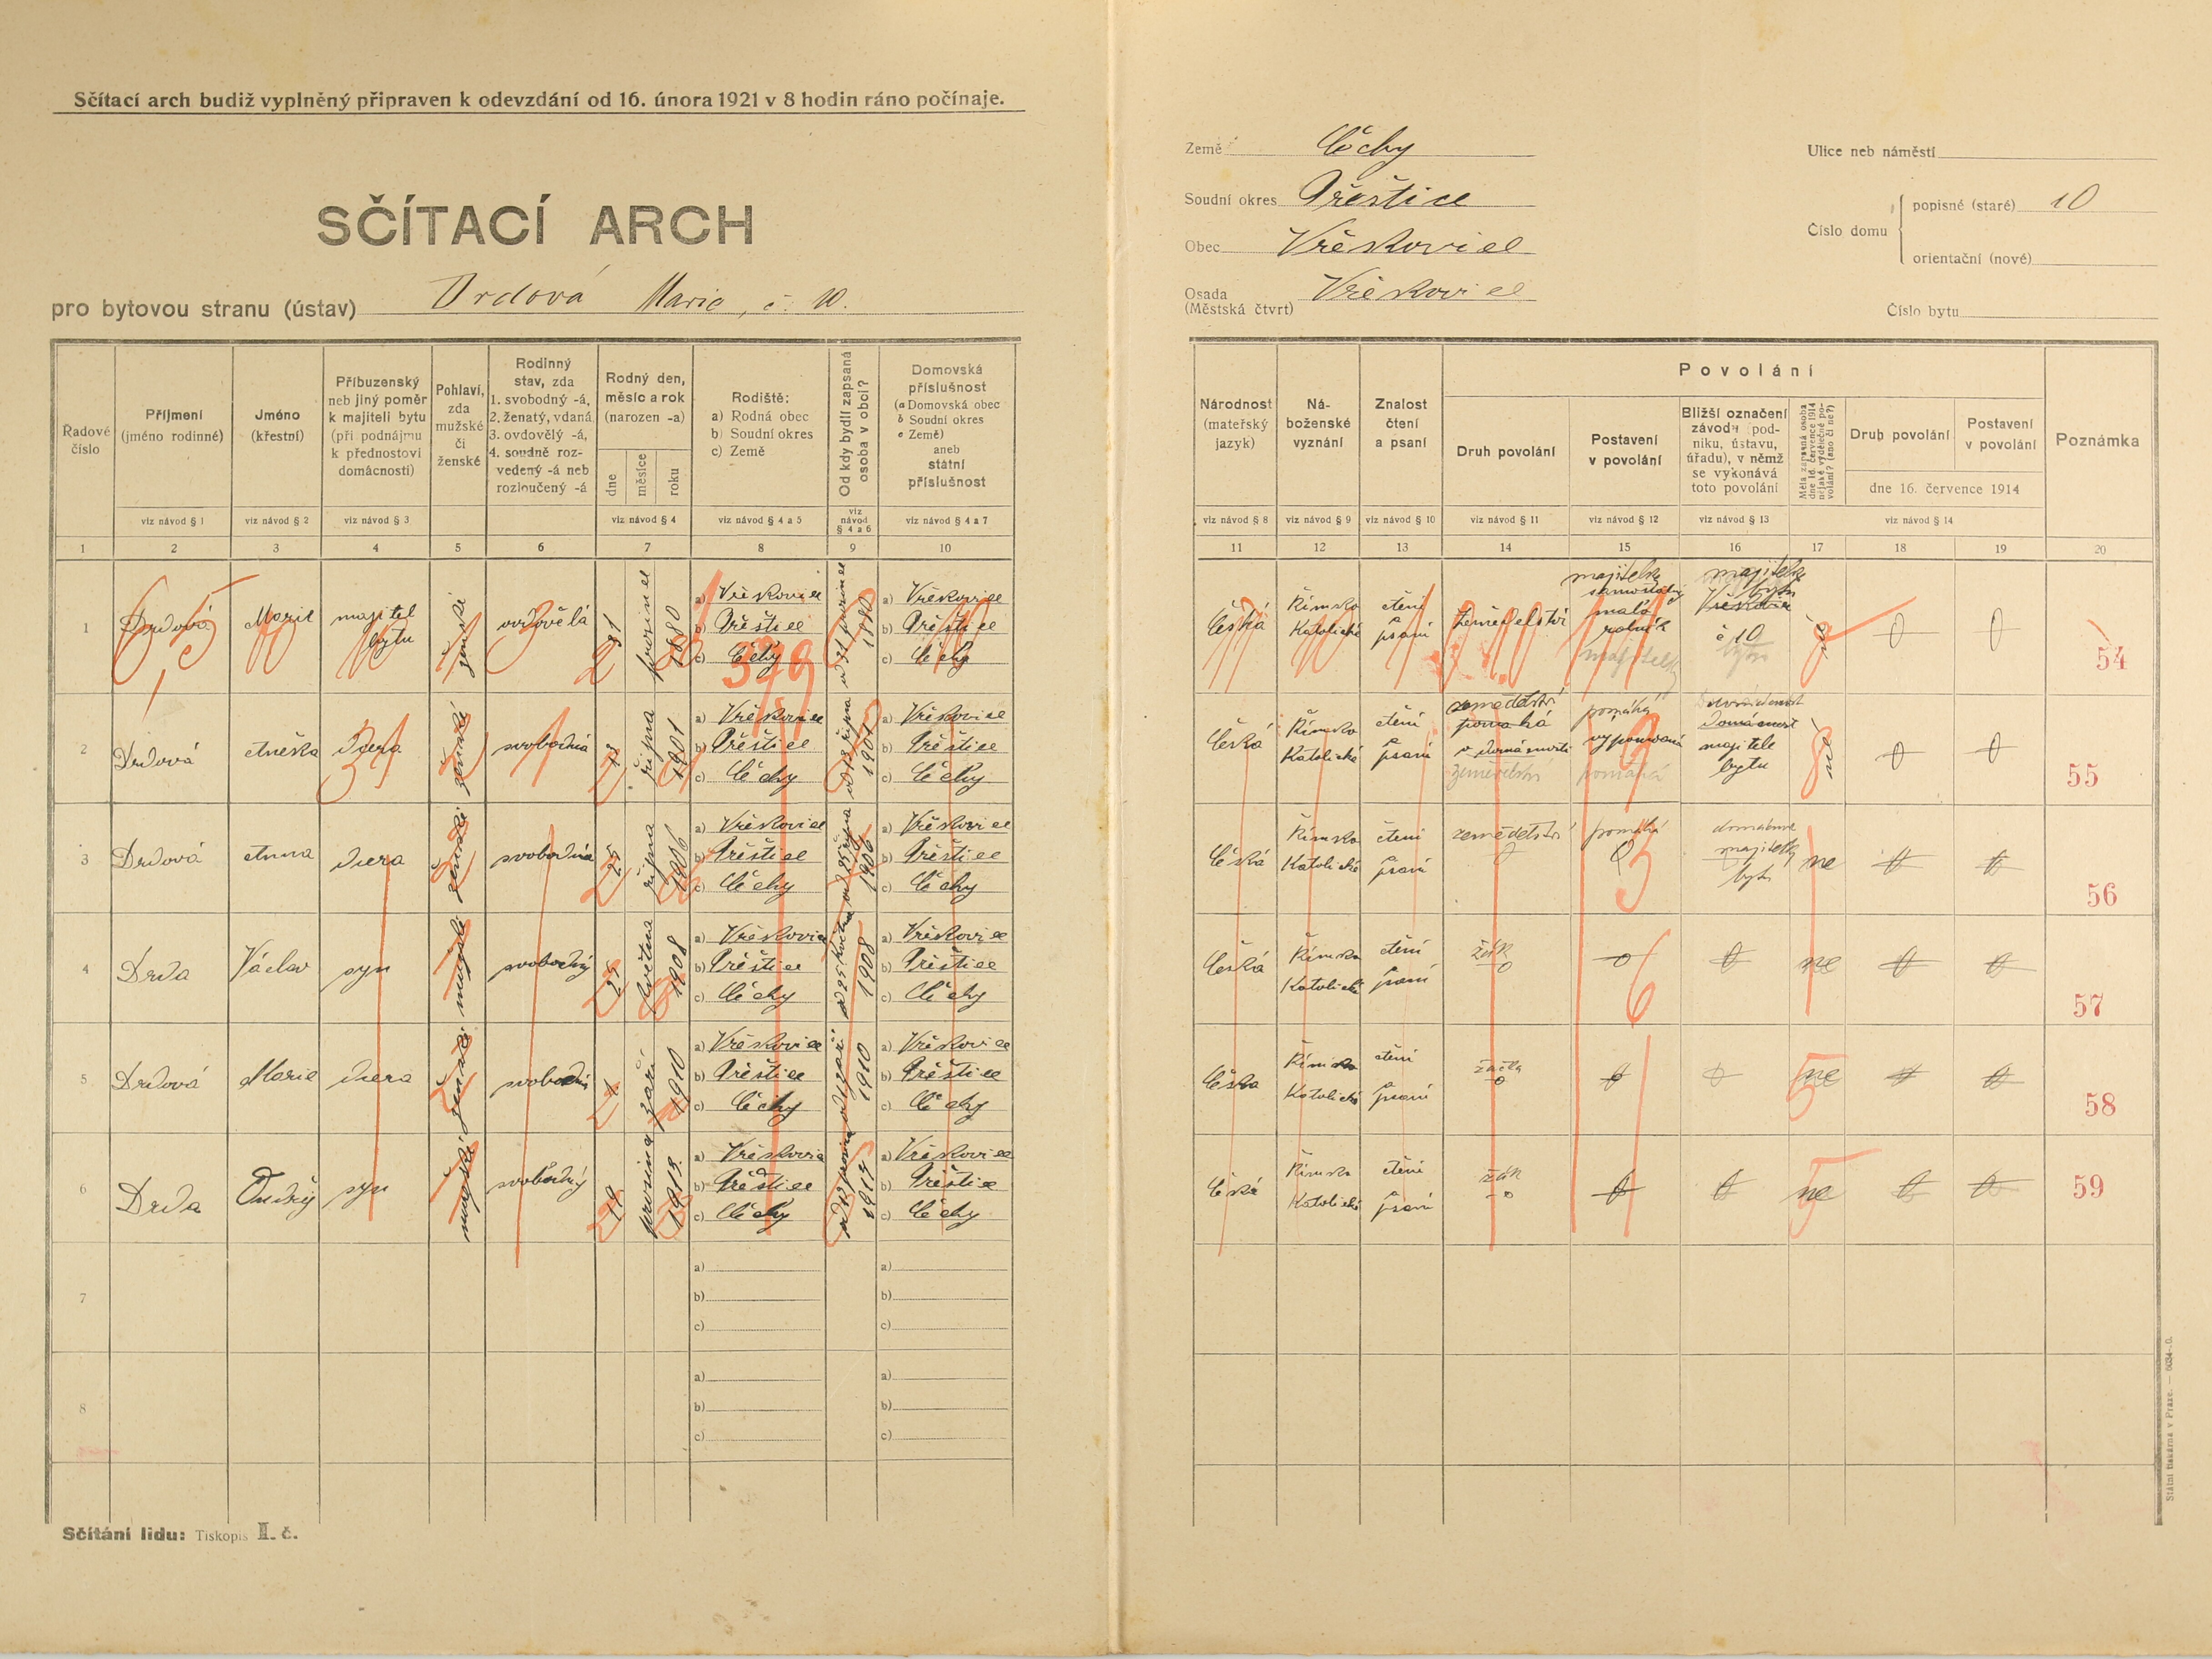 Sčítací arch budiž vyplněný připraven k odevzdání od 16. února 1921 v 8 hodin ráno počínaje.
SČÍTACÍ ARCH
pro bytovou stranu (ústav) Drdová Marie, č. 10.
Země Čechy
Soudní okres Přeštice
Obec Vřeskovice
Osada (Městská čtvrt) Vřeskovice
Ulice neb náměstí
Číslo domu
popisné (staré) 10
orientační (nové)
Číslo bytu
Řadové číslo
Příjmení (jméno rodinné)
Jméno (křestní)
Příbuzenský neb jiný poměr k majiteli bytu (při podnájmu k přednostovi domácnosti)
Pohlaví, zda mužské či ženské
Rodinný stav, zda 1. svobodný -á, 2. ženatý, vdaná 3. ovdovělý -á, 4. soudně rozvedený -á neb rozloučený -á
Rodný den, měsíc a rok (narozen -a)
dne měsíce roku
Rodiště: a) Rodná obec b) Soudní okres c) Země
Od kdy bydlí zapsaná osoba v obci?
Domovská příslušnost (a Domovská obec b Soudní okres c Země) aneb státní příslušnost
viz návod § 1 viz návod § 2 viz návod § 3 viz návod § 4 viz návod § 4 a 5 viz návod § 4 a 6 viz návod § 4 a 7
1 2 3 4 5 6 7 8 9 10
Národnost (mateřský jazyk)
Náboženské vyznání
Znalost čtení a psaní
Povolání
Druh povolání
Postavení v povolání
Bližší označení závodu (podniku, ústavu, úřadu), v němž se vykonává toto povolání
Měla zapsaná osoba dne 16. července 1914 nějaké výdělečné povolání? (ano či ne?)
Druh povolání
Postavení v povolání
dne 16. července 1914
Poznámka
viz návod § 8 viz návod § 9 viz návod § 10 viz návod § 11 viz návod § 12 viz návod § 13 viz návod § 14
11 12 13 14 15 16 17 18 19 20
1 Drdová Marie majitel bytu ženské ovdovělá 31 prosince 1880 a) Vřeskovice b) Přeštice c) Čechy od 31 prosince 1880 a) Vřeskovice b) Přeštice c) Čechy
Česká Římsko Katolické čtení psaní zemědělství majitelka samostatný malo rolník majitelka majitelka bytu Vřeskovice č 10 bytu 0 0 54
2 Drdová Anežka dcera ženské svobodná října 1901 a) Vřeskovice b) Přeštice c) Čechy října 1901 a) Vřeskovice b) Přeštice c) Čechy
Česká Římsko Katolické čtení psaní zemědělství pomahá v domácnosti zemědělství pomáhá pomáhá domácnost majitele bytu ne 0 0 55
3 Drdová Anna dcera ženské svobodná 25 října 1906 a) Vřeskovice b) Přeštice c) Čechy od 25 října 1906 a) Vřeskovice b) Přeštice c) Čechy
Česká Římsko Katolické čtení psaní zemědělství 0 pomáhá majitelky bytu ne 0 0 56
4 Drda Václav syn mužské svobodný 25 května 1908 a) Vřeskovice b) Přeštice c) Čechy od 25 května 1908 a) Vřeskovice b) Přeštice c) Čechy
Česká Římsko Katolické čtení psaní žák 0 0 0 ne 0 0 57
5 Drdová Marie dcera ženské svobodná září 1910 a) Vřeskovice b) Přeštice c) Čechy září 1910 a) Vřeskovice b) Přeštice c) Čechy
Česka Římsko Katolické čtení psaní žačka 0 0 0 ne 0 0 58
6 Drda Ondřej syn mužské svobodný prosince a) Vřeskovice b) Přeštice c) Čechy a) Vřeskovice b) Přeštice c) Čechy
Česká Římsko Katolické čtení psaní žák 0 0 0 ne 0 0 59
7 a) b) c) a) b) c)
8 a) b) c) a) b) c)
Sčítání lidu: Tiskopis II. č.
Státní tiskárna v Praze. — 5034-0.